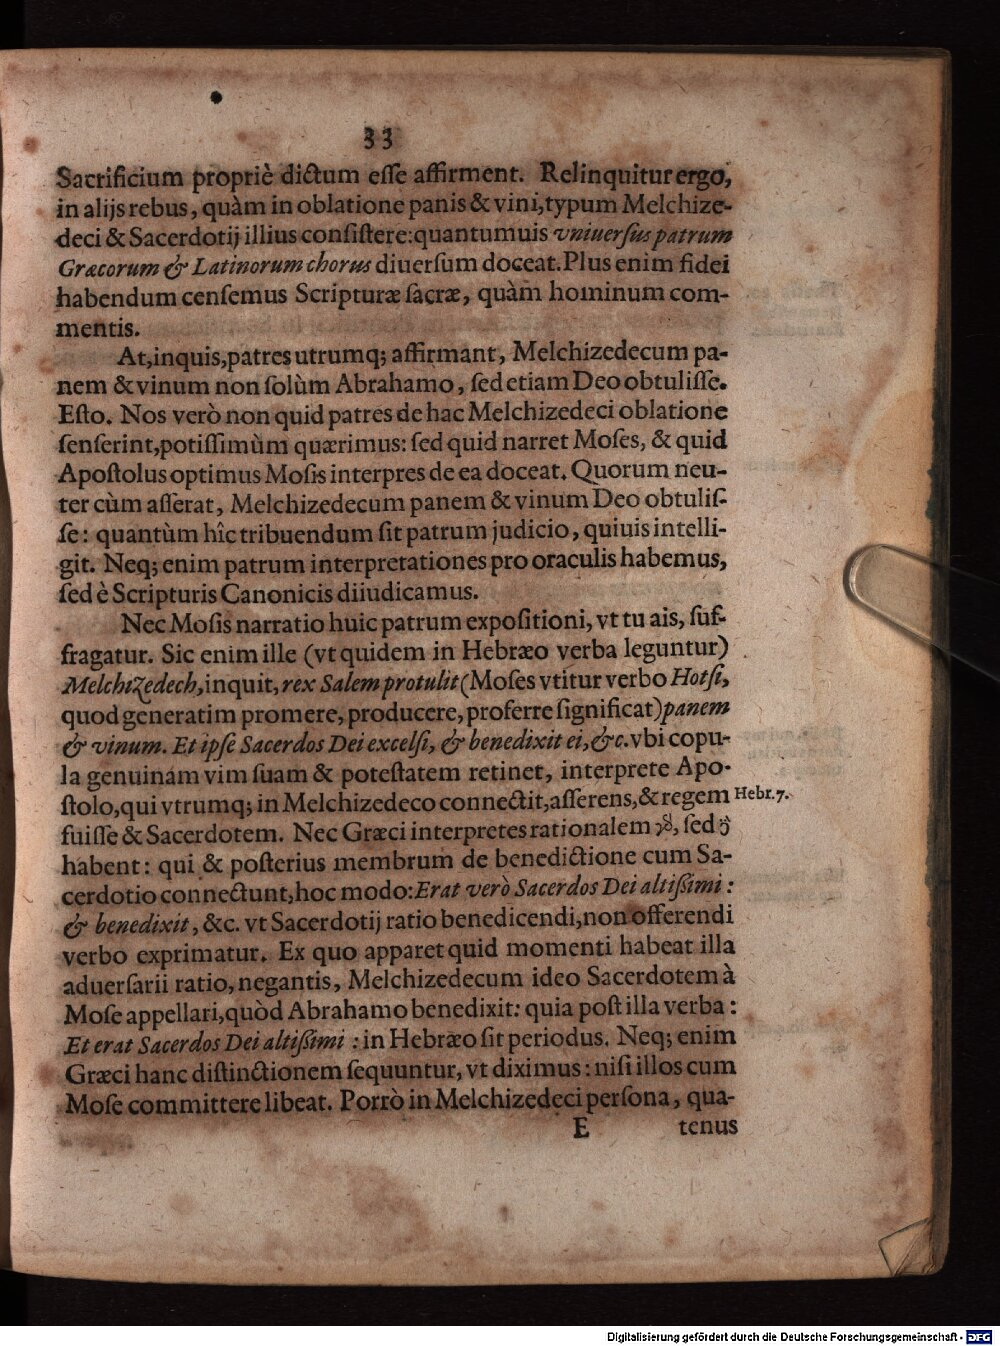 33
Sacrificium propriè dictum esse affirment. Relinquitur ergo,
in alijs rebus, quàm in oblatione panis & vini, typum Melchize-
deci & Sacerdotij illius consistere: quantumuis vniuersus patrum
Græcorum & Latinorum chorus diuersum doceat. Plus enim fidei
habendum censemus Scripturæ sacræ, quàm hominum com-
mentis.
At, inquis, patres utrumq; affirmant, Melchizedecum pa-
nem & vinum non solùm Abrahamo, sed etiam Deo obtulisse.
Esto. Nos verò non quid patres de hac Melchizedeci oblatione
senserint, potissimùm quærimus: sed quid narret Moses, & quid
Apostolus optimus Mosis interpres de ea doceat. Quorum neu-
ter cùm asserat, Melchizedecum panem & vinum Deo obtulis-
se: quantùm hîc tribuendum sit patrum judicio, quiuis intelli-
git. Neq; enim patrum interpretationes pro oraculis habemus,
sed è Scripturis Canonicis diiudicamus.
Nec Mosis narratio huic patrum expositioni, vt tu ais, suf-
fragatur. Sic enim ille (vt quidem in Hebræo verba leguntur)
Melchizedech, inquit, rex Salem protulit (Moses vtitur verbo Hotsi,
quod generatim promere, producere, proferre significat) panem
& vinum. Et ipse Sacerdos Dei excelsi, & benedixit ei, &c. vbi copu-
la genuinam vim suam & potestatem retinet, interprete Apo-
stolo, qui vtrumq; in Melchizedeco connectit, asserens, & regem
Hebr. 7.
fuisse & Sacerdotem. Nec Græci interpretes rationalem , sed
habent: qui & posterius membrum de benedictione cum Sa-
cerdotio connectunt, hoc modo: Erat verò Sacerdos Dei altissimi:
& benedixit, &c. vt Sacerdotij ratio benedicendi, non offerendi
verbo exprimatur. Ex quo apparet quid momenti habeat illa
aduersarii ratio, negantis, Melchizedecum ideo Sacerdotem à
Mose appellari, quòd Abrahamo benedixit: quia post illa verba:
Et erat Sacerdos Dei altissimi: in Hebræo sit periodus. Neq; enim
Græci hanc distinctionem sequuntur, vt diximus: nisi illos cum
Mose committere libeat. Porrò in Melchizedeci persona, qua-
E tenus
Digitalisierung gefördert durch die Deutsche Forschungsgemeinschaft - DFG